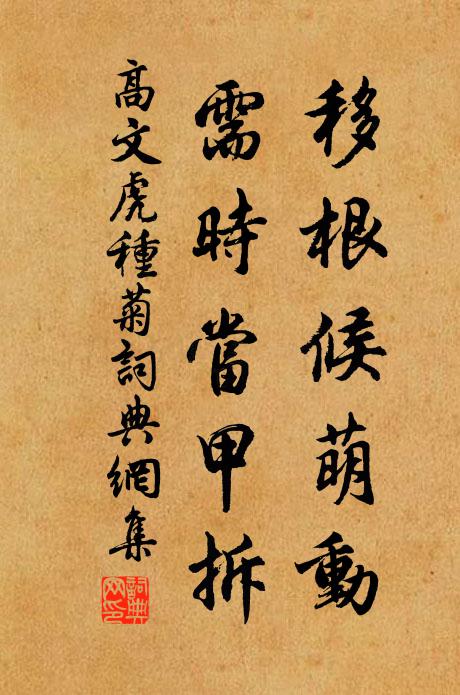 移根候萌動
需時當甲拆
高文虎種菊詞典網集
詞典网印